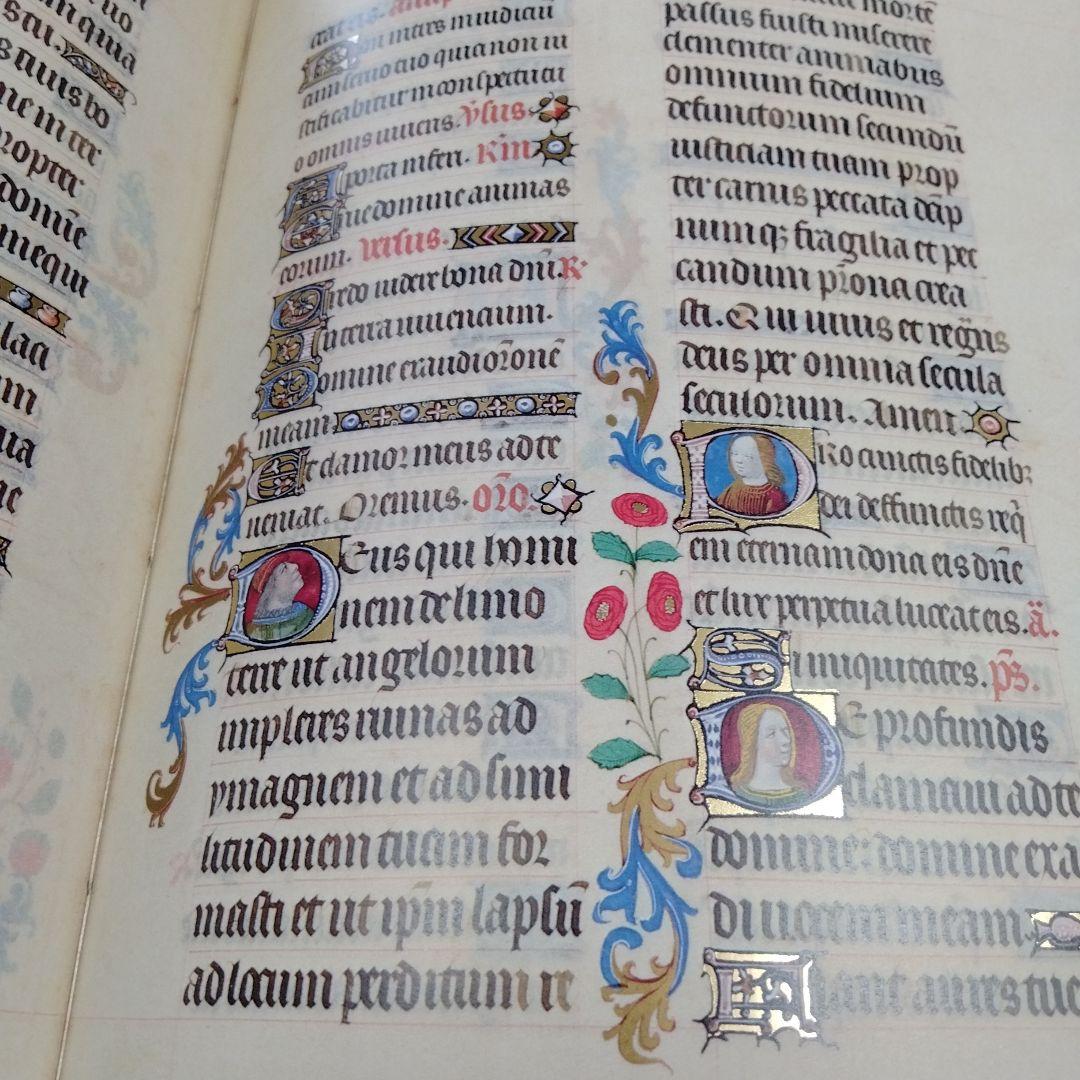 tuo
quia
eius bo
ne in ter
propter
domie
mequi
laci
um
ua
ac
eatis.
Non intres in iudiciū
cum seruo tuo quia non iu
stificabitur in conspectu tu
o omnis uiuens. v̄sus.
A porta inferi. Rm̄
Erue domine animas
eorum. versus.
Credo uidere bona dn̄i. R.
In terra uiuencium.
Domine exaudi or̄onē
meam
Et clamor meus ad te
ueniat. Oremus. or̄o.
Deus qui homi
nem de limo
terre ut angelorum
impleres ruinas ad
ymaginem et ad simi
litudinem tuam for
masti et ut ip̄m lapsū
ad locum perditum re
mortē
passus fuisti miserere
clementer animabus
omnium fidelium
defunctorum secundū
iusticiam tuam prop
ter carnis peccata
numq; fragilia et pec
candum p̄rona crea
sti. Qui uiuis et regn̄s
deus per omnia secula
seculorum. Amen
Pro cunctis fidelib;
dei deffunctis req̄
em eternam dona eis dn̄e
et lux perpetua luceat eis. ā.
Si iniquitates. p̄s.
De profundis
clamaui ad te
domine: domine exa
di uocem meam
Fiant aures tue